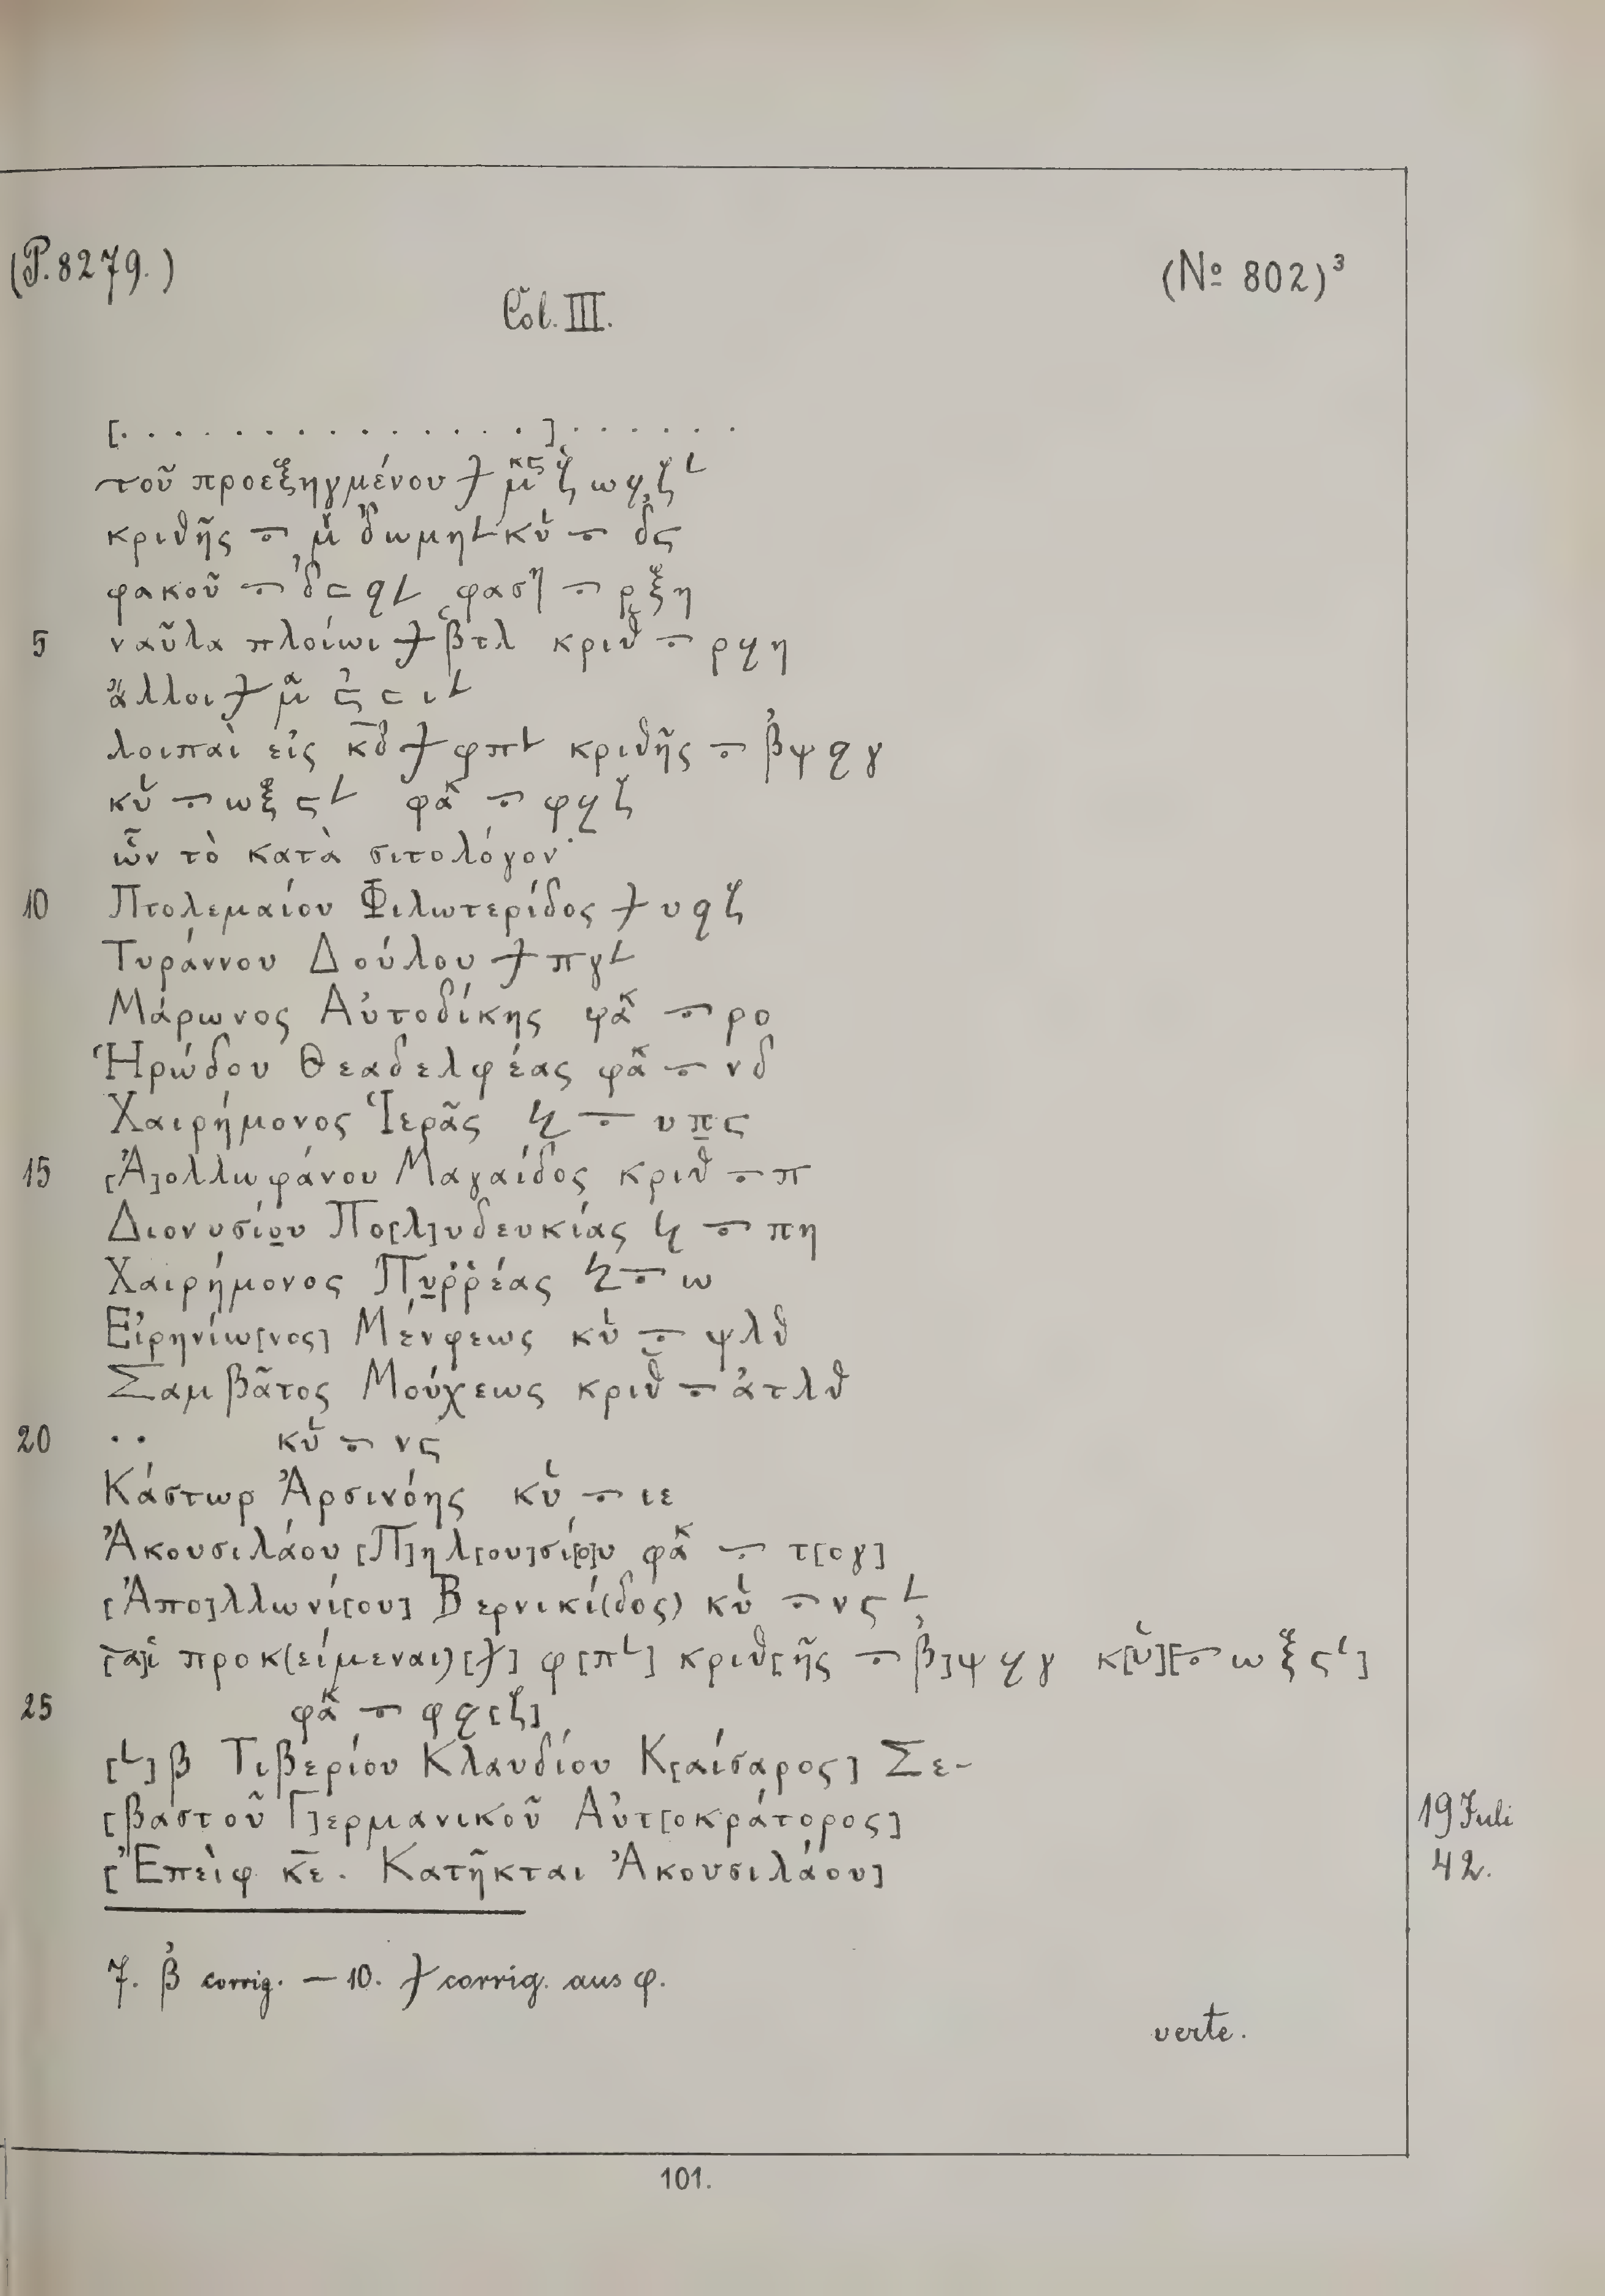 (P. 8279.)
(№ 802)³
Col. III.
[. . . . . . . . . . . . . . .] . . . . . .
τοῦ προεξηγμένου
κριθῆς ⨪ κὐ ⨪ δς
φακοῦ ⨪ φασῆ ⨪ ρξη
5 ναῦλα πλοίωι βτλ κριθ ⨪ ρϥη
ἄλλοι
λοιπαὶ εἰς κ̅δ̅ φπ𐅵 κριθῆς ⨪ ͵βψϥγ
κὐ ⨪ ωξϛ𐅵 φακ ⨪ φϥζ
ὧν τὸ κατὰ σιτολόγον·
10 Πτολεμαίου Φιλωτερίδος υϥζ
Τυράννου Δούλου πγ𐅵
Μάρωνος Αὐτοδίκης φακ ⨪ ρο
Ἡρώδου Θεαδελφέας φακ ⨪ νδ
Χαιρήμονος Ἱερᾶς ⨪ υπ̲ϛ
15 [Ἀ]ολλωφάνου Μαγαίδος κριθ ⨪ π
Διονυσίου Πο[λ]υδευκίας ⨪ πη
Χαιρήμονος Πυῤῥέας ⨪ ω
Εἰρηνίω[νος] Μένφεως κὐ ⨪ ψλθ
Σαμβᾶτος Μούχεως κριθ ⨪ ͵ατλθ
20 .. κὐ ⨪ νϛ
Κάστωρ Ἀρσινόης κὐ ⨪ ιε
Ἀκουσιλάου [Π]ηλ[ου]σί[ο]υ φακ ⨪ τ[ογ]
[Ἀπο]λλωνί[ου] Βερνικί(δος) κὐ ⨪ νϛ𐅵
[τα]ὶ προκ(είμεναι) φ[π𐅵] κριθ[ῆς ⨪ ͵β]ψϥγ κ[ὐ][⨪ ωξϛ𐅵]
25 φακ ⨪ φϥ[ζ]
[𐅹] β Τιβερίου Κλαυδίου Κ[αίσαρος] Σε-
[βαστοῦ Γ]ερμανικοῦ Αὐτ[οκράτορος]
19 Juli
[Ἐπεὶφ κ̅ε̅. Κατῆκται Ἀκουσιλάου]
42.
7. ͵β corrig. — 10. corrig. aus φ.
verte.
101.